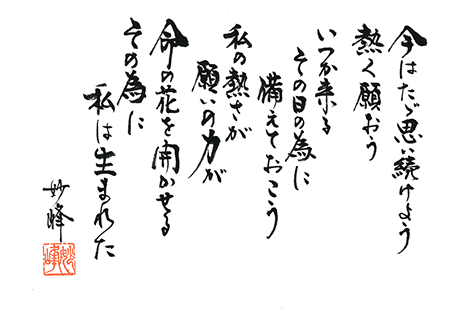 今はたゞ思い続けよう
熱く願おう
いつか来る
その日の為に
備えておこう
私の熱さが
願いの力が
命の花を開かせる
その為に
私は生まれた
妙峰
妙峰